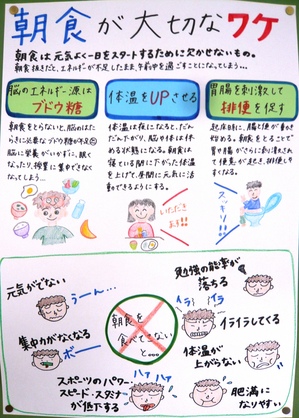 朝食が大切なワケ
朝食は元気よく一日をスタートするために欠かせないもの。
朝食抜きだと、エネルギーが不足したまま、午前中を過ごすことになってしまう…
脳のエネルギー源は
ブドウ糖
体温をUPさせる
胃腸を刺激して
排便を促す
朝食をとらないと、脳のはた
らきに必要なブドウ糖が不足
脳に栄養がいかずに、眠く
なったり、授業に集中できなく
なってしまう…
体温は夜になると、だん
だん下がり、脳や体は休
める状態になる。朝食は
寝ている間に下がった体温
を上げて、昼間に元気に活
動できるようにする。
起床時に、胃と腸が動き
始める。朝食をとることで
胃や腸がさらに刺激されて
便意が起き、排便しや
すくなる。
いただき
ます!!
スッキリ!!
朝食を
食べてこない
と…
元気がでない
うーん…
集中力がなくなる
ボー
スポーツのパワー・
スピード・スタミナ
が低下する
ハァ ハァ
勉強の能率が
落ちる
イライラ
イライラしてくる
体温が
上がらない
肥満に
なりやすい